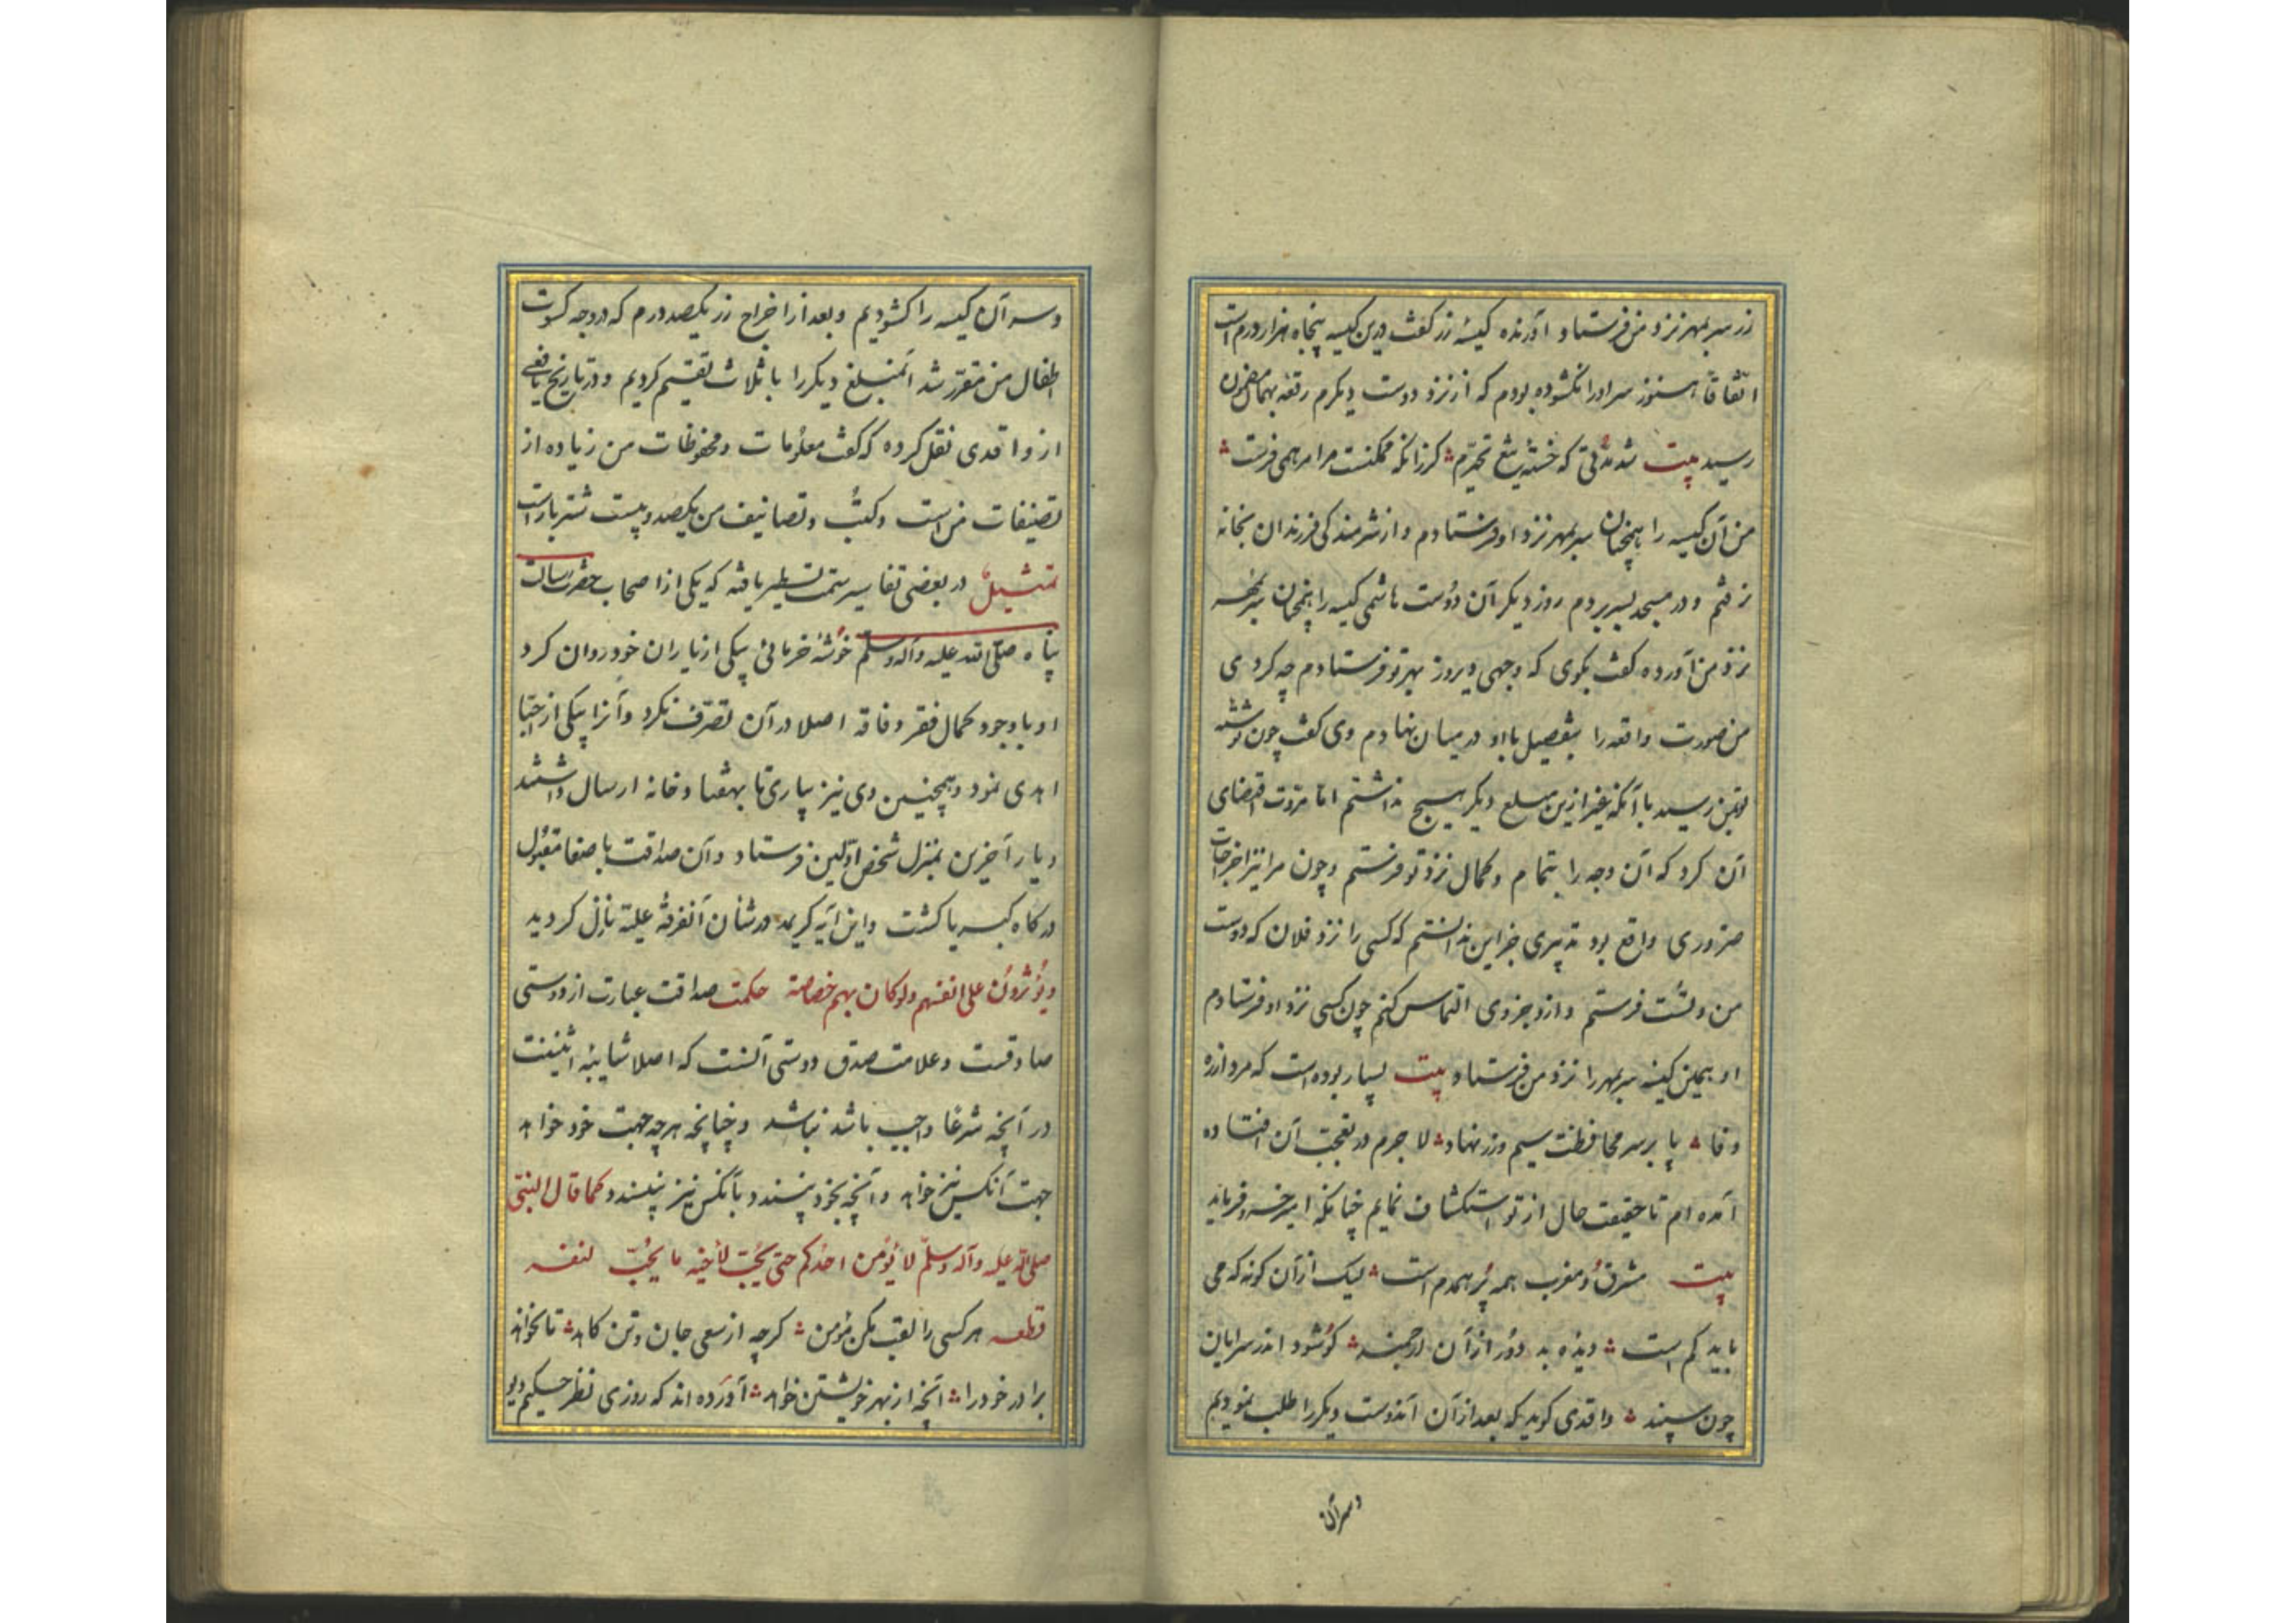 زر سربمهر نزد من فرستاد و آورنده کیسهٔ زر کفت درین کیسه پنجاه هزار درم است
اتّفاقاً هنوز سر او را نکشوده بودم که از نزد دوست دیکرم رقعه بهمان مضمون
رسید بیت شد مدّتی که خستهٔ تیغ تحیّرم کر زانکه ممکنست مرا مرهمی فرست
من آن کیسه را همچنان سربمهر نزد او فرستادم و از شرمندکی فرزندان بخانه
نرفتم و در مسجد بسر بردم روز دیکر آن دوست هاشمی کیسه را همچنان سربمهر
نزد من آورده کفت بکوی که وجهی دیروز بهر تو فرستادم چه کردی
من صورت واقعه را بتفصیل با او در میان نهادم وی کفت چون نوشته
تو بمن رسید با آنکه غیر ازین مبلغ دیکر هیچ نداشتم امّا مروّت اقتضای
آن کرد که آن وجه را بتمام و کمال نزد تو فرستم و چون مرا نیز اخراجات
ضروری واقع بود تدبیری جز این ندانستم که کسی را نزد فلان که دوست
من و تست فرستم و ازو جزوی التماس کنم چون کسی نزد او فرستادم
او همین کیسه سربمهر را نزد من فرستاد بیت بسیار بوده است که مرد از ره
وفا پا بر سر محافظت سیم و زر نهاد لا جرم در تعجّب آن افتاده
آمده ام تا حقیقت حال از تو استکشاف نمایم چنانکه امیر خسرو فرماید
بیت مشرق و مغرب همه پُر همدم است لیک از آن کونه که می
باید کم است دیده به دور از آن ارجمند کو شود اندر سر یاران
چون سپند واقدی کوید که بعد از آن آندوست دیکر را طلب نمودیم
و سر آن
و سر آن کیسه را کشودیم و بعد از اخراج زر یکصد درم که در وجه کسوت
اطفال من مقرّر شد آنمبلغ دیکر را با ثلاث تقسیم کردیم و در تاریخ یافعی
از واقدی نقل کرده که کفت معلومات و محفوظات من زیاده از
تصنیفات من است و کتب و تصانیف من یکصد و بیست شتر بار است
تمثیل در بعضی تفاسیر سمت تسطیر یافته که یکی از اصحاب حضرت رسالت
پناه صلّی الله علیه وآله وسلّم خوشهٔ خرمائی بیکی از یاران خود روان کرد
او با وجود کمال فقر و فاقه اصلا در آن تصرّف نکرد و آنرا بیکی از احبّا
اهدی نمود و همچنین وی نیز بیاری تا بهفتاد خانه ارسال داشتند
و یار آخرین بمنزل شخص اوّلین فرستاد و آن صداقت با صفا مقبول
درکاه کبریا کشت و این آیه کریمه در شأن آنفرقهٔ علیّه نازل کردید
ویُؤثرون علی انفسهم ولو کان بهم خصاصة حکمت صداقت عبارت از دوستی
صادقست و علامت صدق دوستی آنست که اصلا شایبهٔ اثنینیت
در آنچه شرعا واجب باشد نباشد و چنانچه هر چه جهت خود خواهد
جهت آنکس نیز خواهد و آنچه بخود پسندد بآنکس نیز پسندد کما قال النبیّ
صلی الله علیه وآله وسلّم لا یُؤمن احدکم حتی یحبّ لأخیه ما یحُبّ لنفسه
قطعه هر کسی را لقب مکن مؤمن کرچه از سعی جان و تن کاهد تا نخواهد
برادر خود را آنچه از بهر خویشتن خواهد آورده اند که روزی نظر حکیم دیو